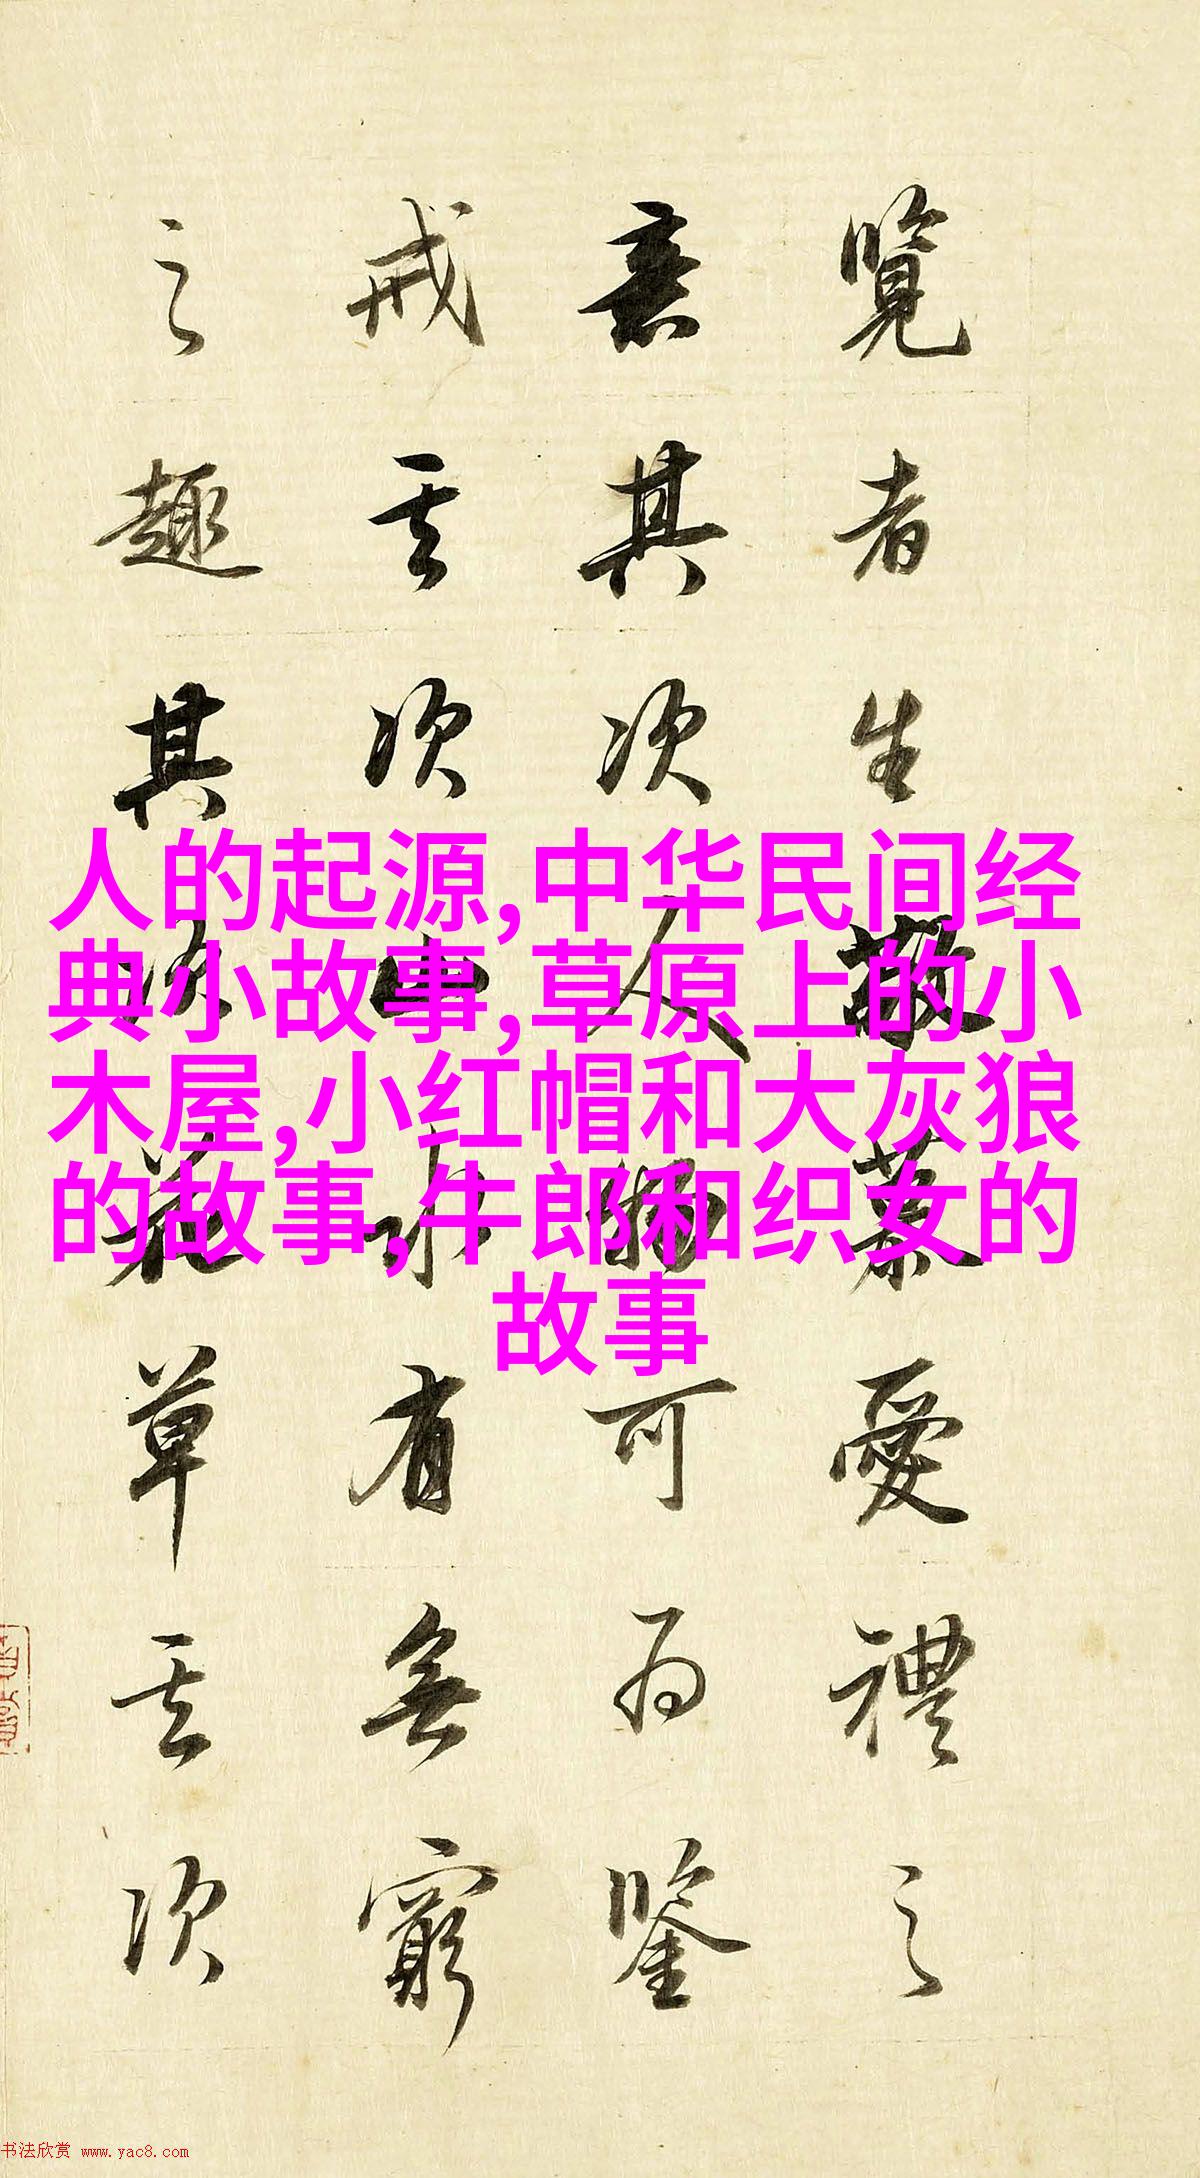 覽者生敬慕愛禮之
意其次人物可為鑒
戒其次山水有無窮
之趣其次花草其次
人的起源,中华民间经
典小故事,草原上的小
木屋,小红帽和大灰狼
的故事,牛郎和织女的
故事
书法欣赏 www.yac8.com